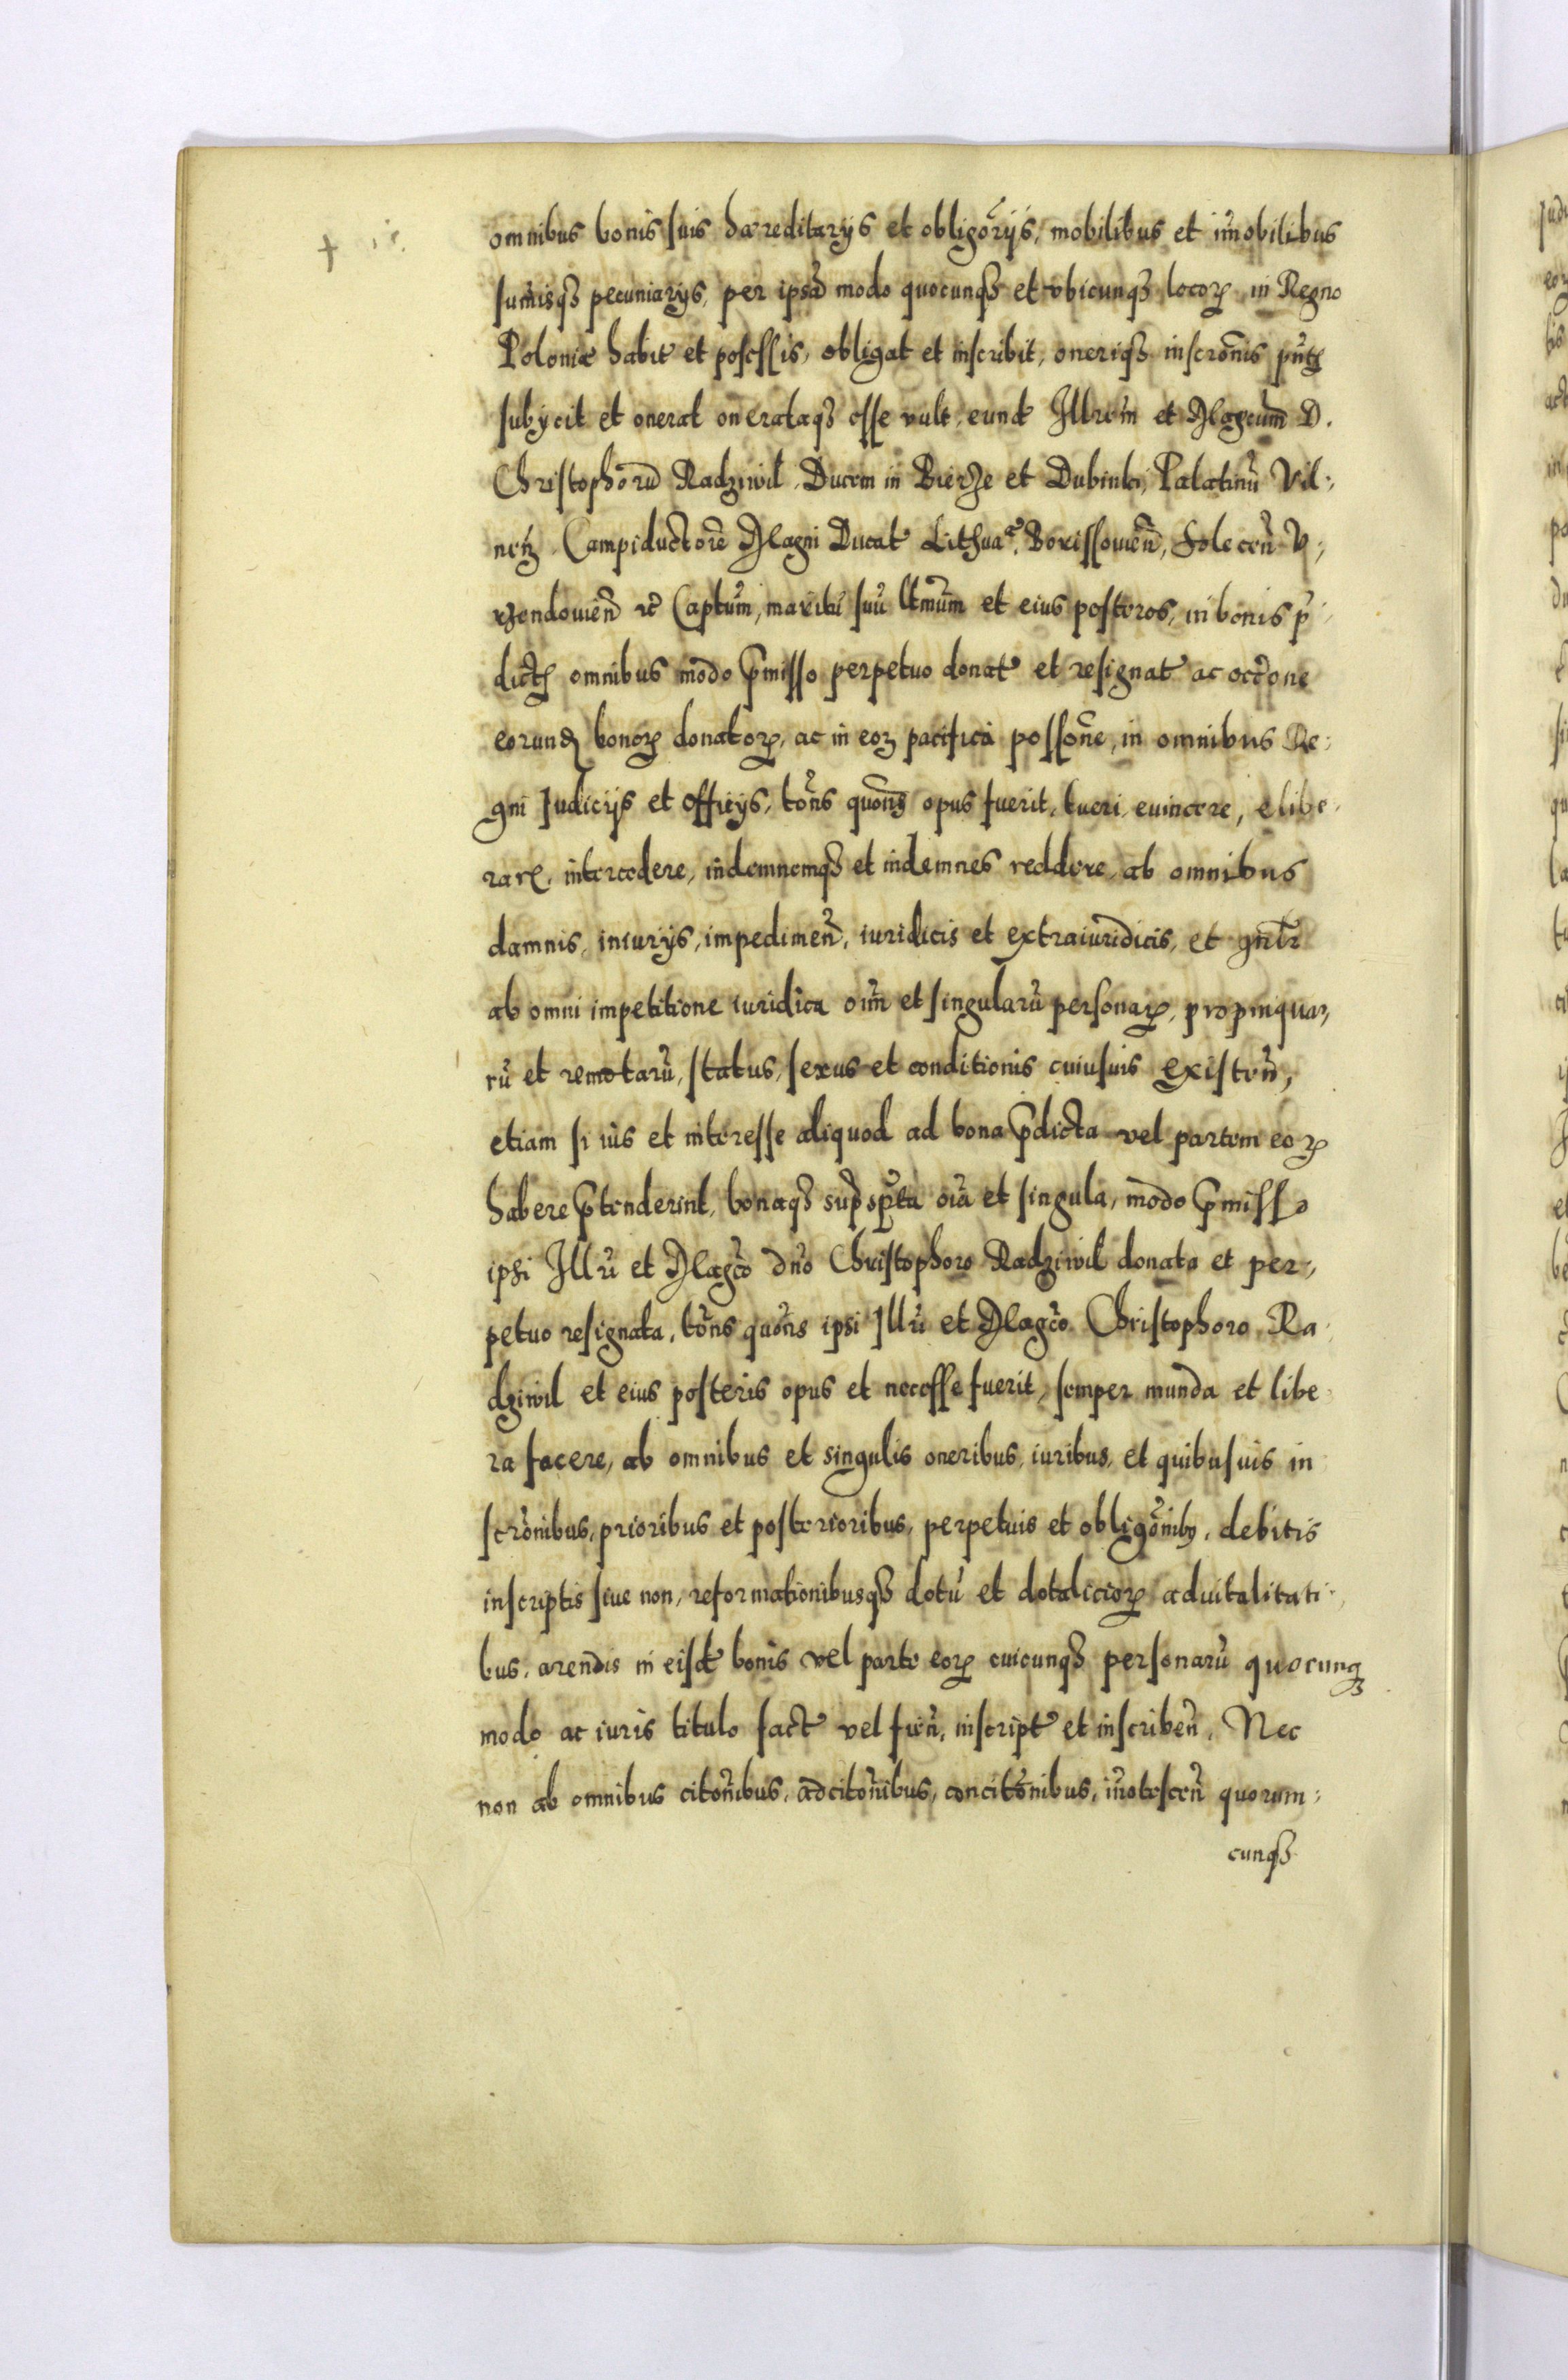 omnibus bonis suis hæreditarÿs et obligõrÿs, mobilibus et im̃obilibus
sum̃isq₃ pecuniarÿs, per ipsã modo quocunq₃ et vbicunq₃ locoꝝ in Regno
Poloniæ habit et posessis, obligat et inscribit, oneriq₃ inscrõnis pñtꝭ
subÿcit et onerat onerataq₃ esse vult, eund Illrem̃ et Magcum̃ D.
Christophorũ Radziwil, Ducem in Bierże et Dubinki, Palatinũ Vil;
neñ, Campiductorẽ Magni Ducat Lithuaͤ, Borissouieñ, Solecen̄ V;
rzendouieñ ꝛc Captum̃, maritũ suũ ltmũm et eius posteros, in bonis p̃;
dictꝭ omnibus modo p̃misso perpetuo donat et resignat ac occõne
eorundꝭ bonoꝝ donatoꝝ, ac in eoꝝ pacifica possõne, in omnibus Re;
gni Judicÿs et officÿs, tõns quõns opus fuerit, tueri, euincere, elibe;
rarꝭ, intercedere, indemnemq₃ et indemnes reddere, ab omnibus
damnis, iniurÿs, impedimeñ, iuridicis et extraiuridicis, et gñtr
ab omni impetitione iuridica oim̃ et singularũ personaꝝ, propinqua;
rũ et remotarũ, status, sexus et conditionis cuiusuis existeñ,
etiam si ius et interesse aliquod ad bona p̃dicta vel partem eoꝝ
habere p̃tenderint, bonaq₃ sup̃sp̃ta oĩa et singula, modo p̃misso
ipsi Illrĩ et Magcõ dño Christophoro Radziwil donata et per;
petuo resignata, tõns quõns ipsi Illrĩ et Magcõ Christophoro Ra;
dziwil et eius posteris opus et necesse fuerit, semper munda et libe;
ra facere, ab omnibus et singulis oneribus, iuribus, et quibusuis in
scrõnibus, prioribus et posterioribus, perpetuis et obligõnibꝫ, debitis
inscriptis siue non, reformationibusq₃ dotũ et dotalicioꝝ aduitalitati;
bus, arendis in eisd bonis vel parte eoꝝ cuicunq₃ personarũ quocunq₃
modo ac iuris titulo fact vel fieñ, inscript et inscribeñ, Nec
non ab omnibus citõnibus, adcitõnibus, concitõnibus, iñotesceñ quorum;
cunq₃